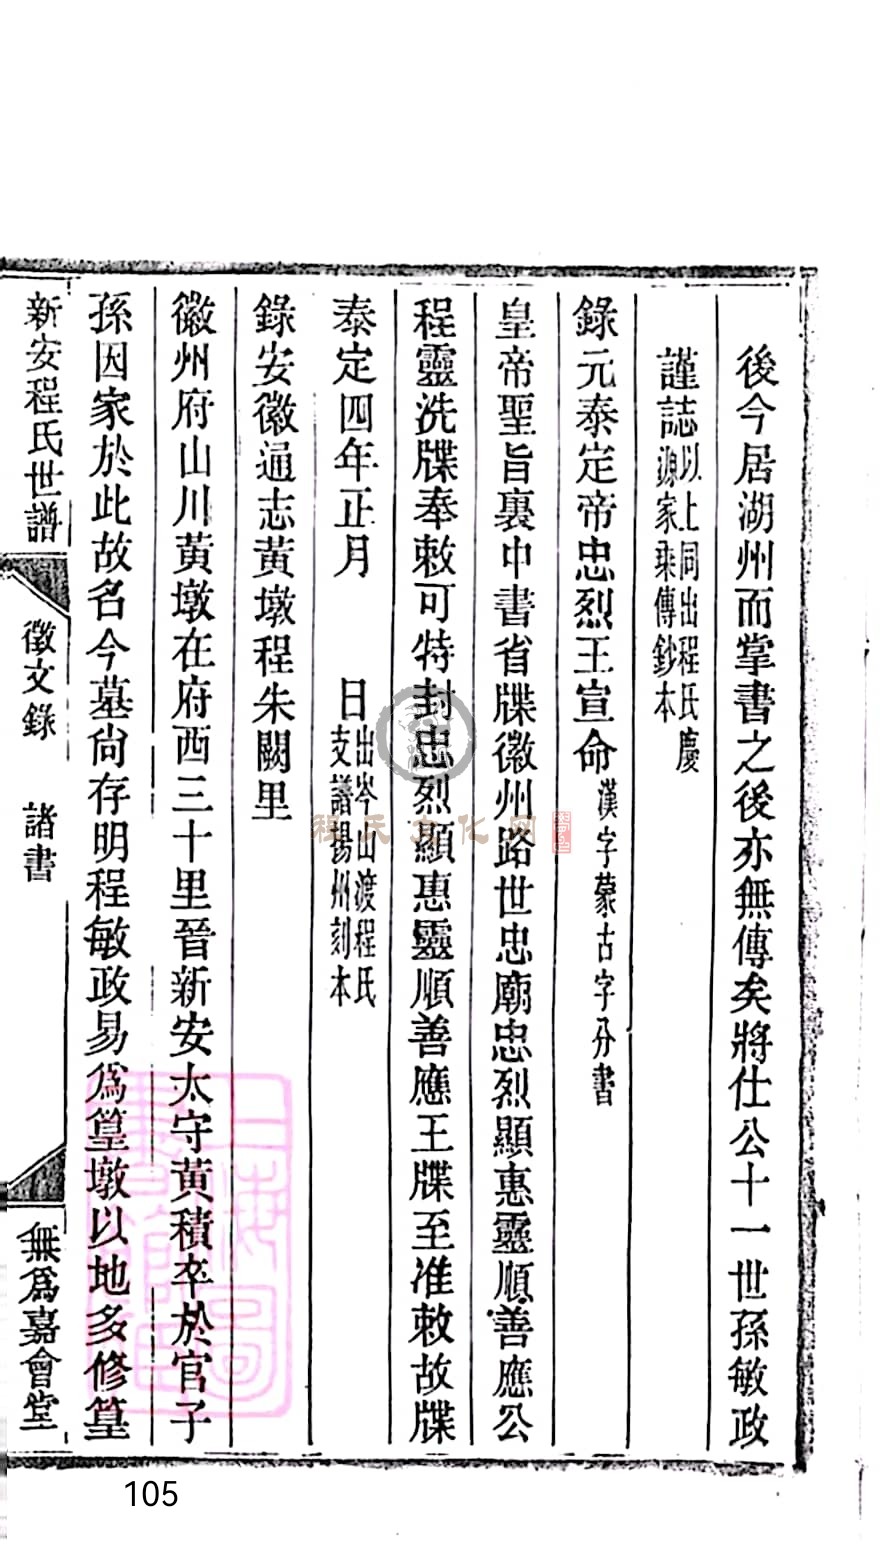 後今居湖州而掌書之後亦無傳矣將仕公十一世孫敏政
謹誌以上同出程氏慶源家乘傳鈔本
錄元泰定帝忠烈王宣命漢字蒙古字分書
皇帝聖旨裏中書省牒徽州路世忠廟忠烈顯惠靈順善應公
程靈洗牒奉敕可特封忠烈顯惠靈順善應王牒至准敕故牒
泰定四年正月 日出岑山渡程氏支譜揚州刻本
錄安徽通志黃墩程朱闕里
徽州府山川黃墩在府西三十里晉新安太守黃積卒於官子
孫因家於此故名今墓尙存明程敏政易爲篁墩以地多修篁
新安程氏世譜 徵文錄 諸書 無爲嘉會堂
程氏文化网
105